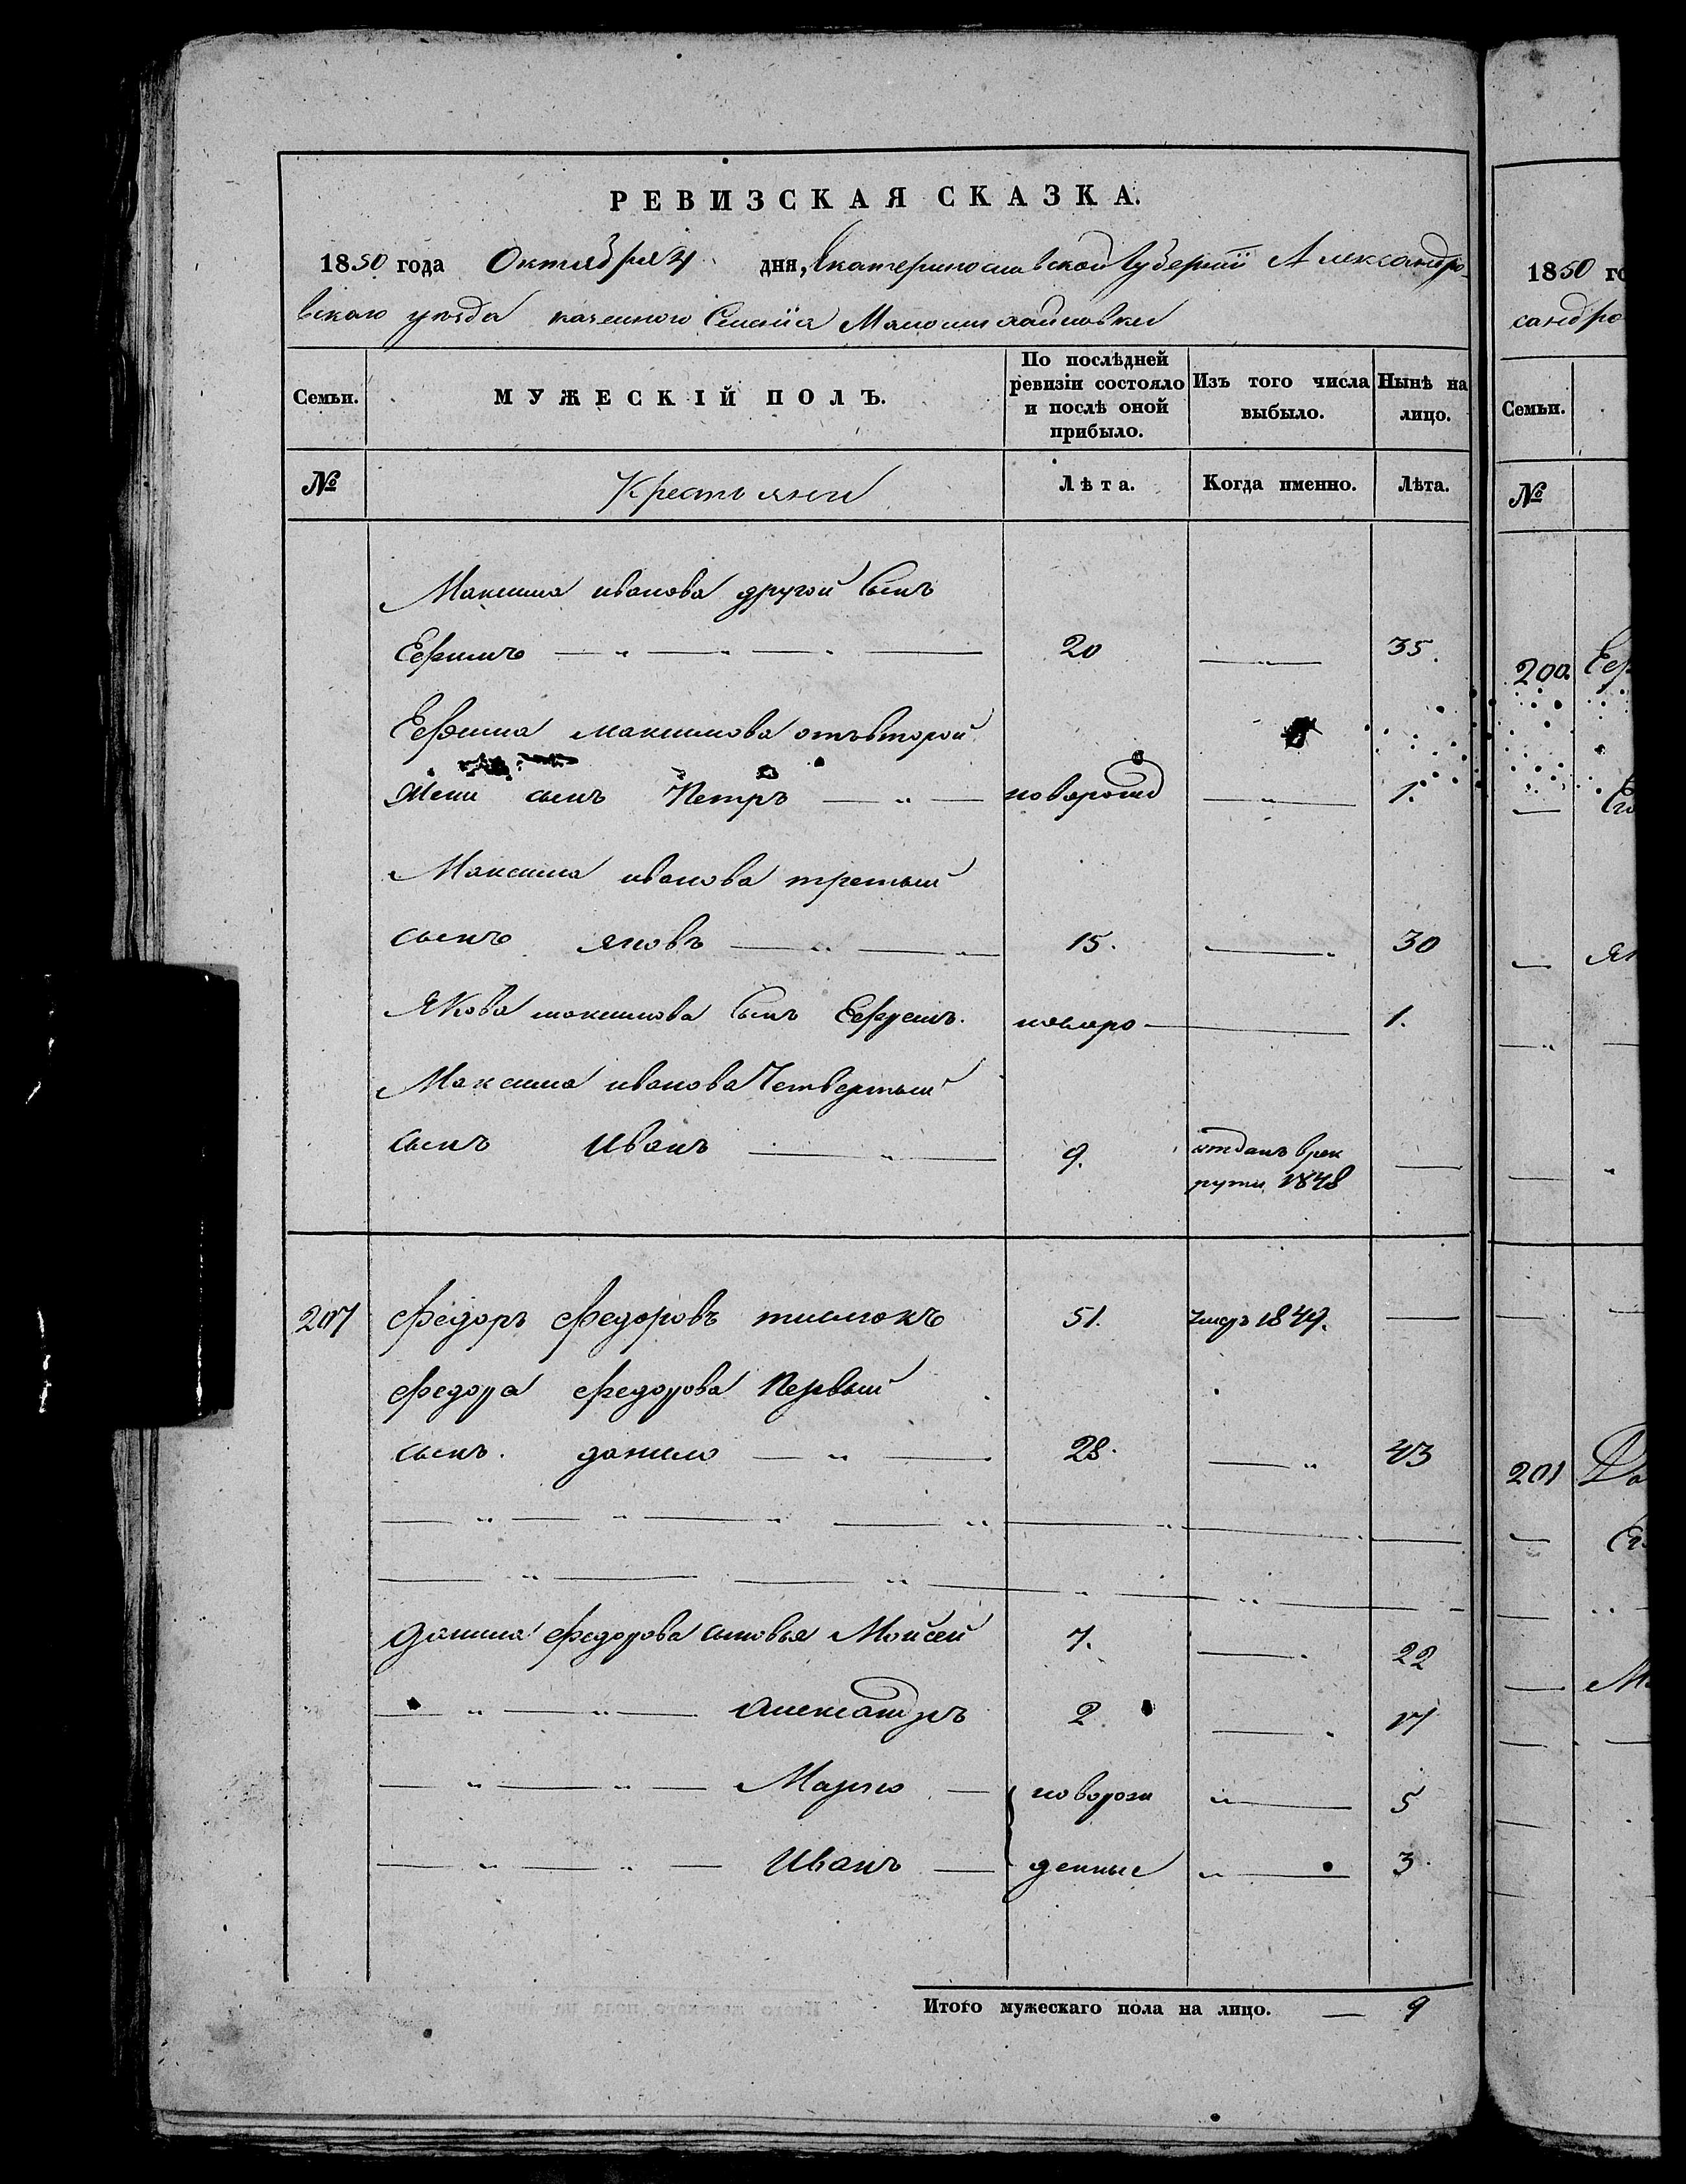 РЕВИЗСКАЯ СКАЗКА.
1850 года Октября 4 дня, Екатеринославской Губерніи Александро-
вскаго уѣзда казенного Селенія Маломихайловки
Семьи.
МУЖЕСКІЙ ПОЛЪ.
По послѣдней
ревизіи состояло
и послѣ оной
прибыло.
Изъ того числа
выбыло.
Нынѣ на
лицо.
№
Крестьяни
Лѣта.
Когда именно.
Лѣта.
Максима иванова другой Сынъ
Ефимъ 20 35.
Ефима максимова отъ второй
Жени сынъ Петръ новорожд 1.
Максима иванова третьий
сынъ яковъ 15. 30
Якова максимова Сынъ Ефремъ. новоро 1.
Максима иванова Четвертый
сынъ Иванъ 9. отданъ врек
рути 1848
207 Федоръ Федоровъ 51. умеръ 1849.
Федора Федорова Первый
сынъ. данило 28. 43
данила Федорова сыновья Мойсей 7. 22
Александръ 2. 17
Марко новорож 5
Иванъ денные 3.
Итого мужескаго пола на лицо. — 9
1850 го
сандро
Семьи.
№
200 Еф
Як
201 Да
М